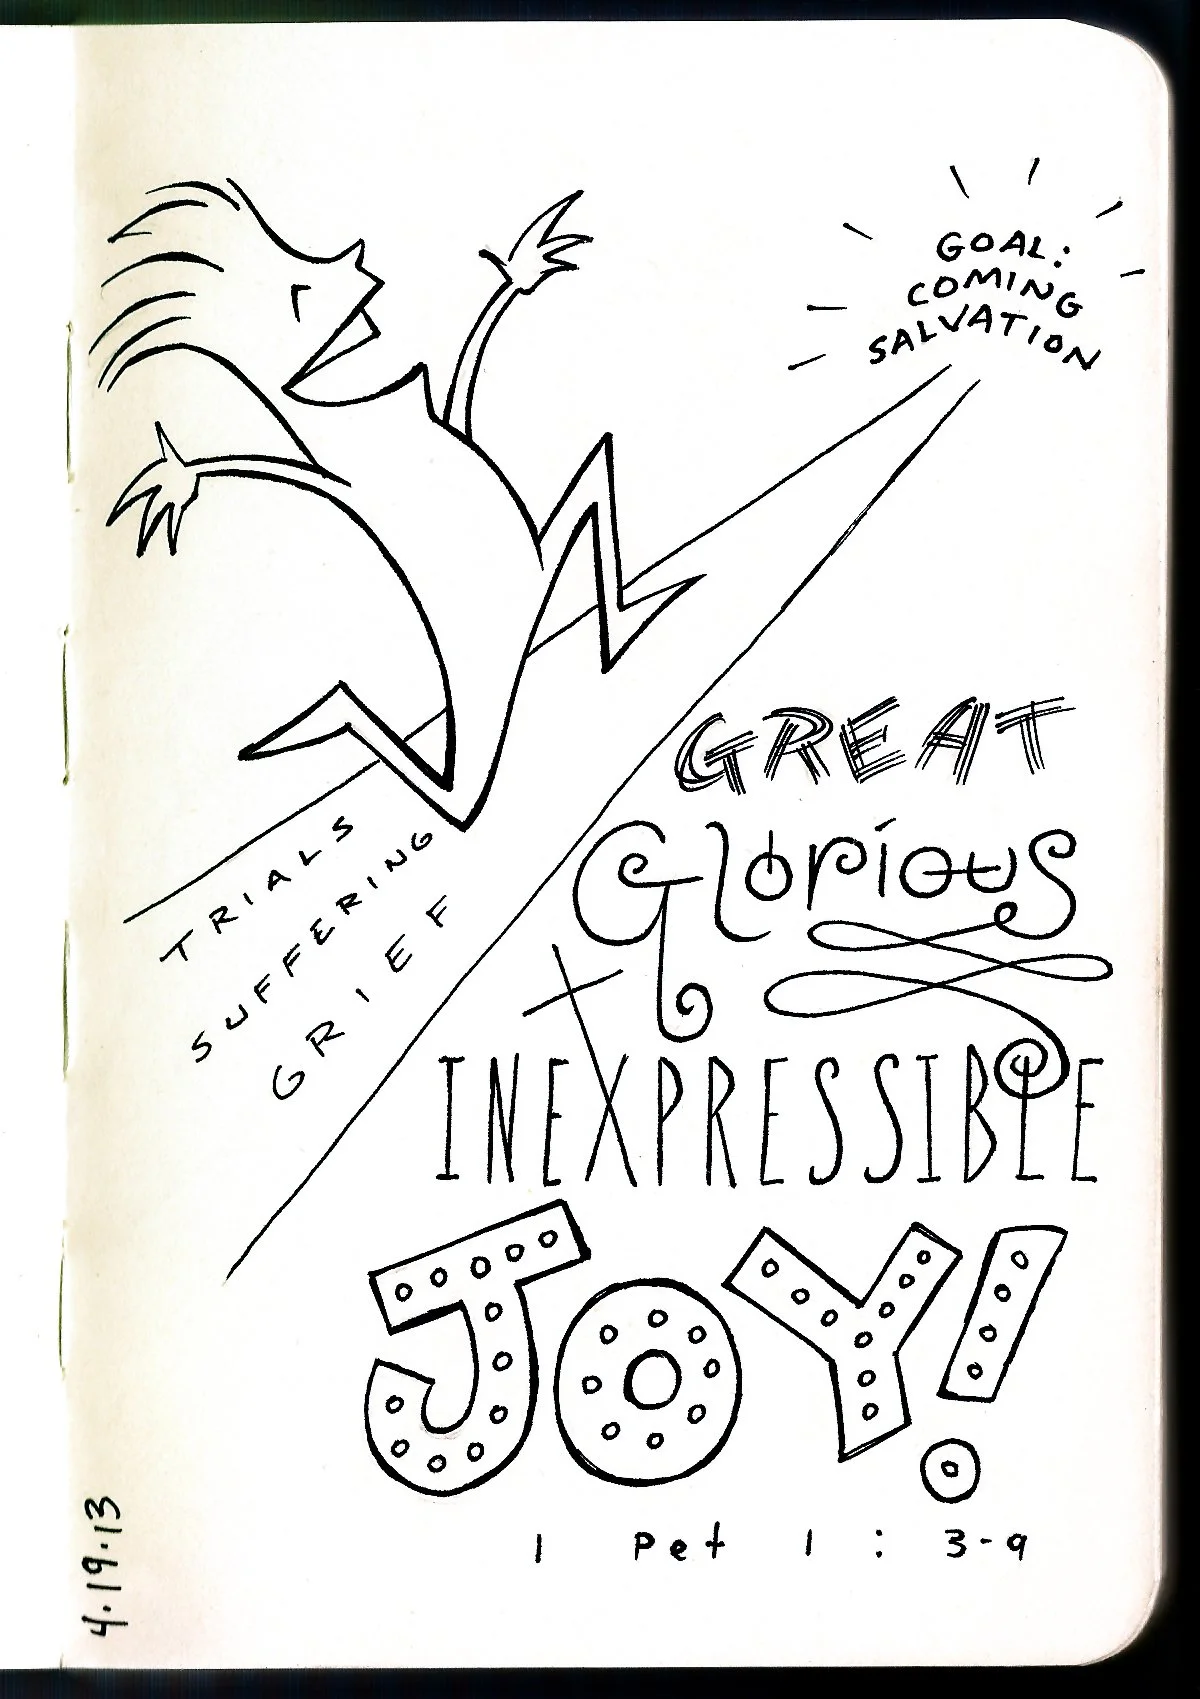 GOAL:
COMING
SALVATION
TRIALS
SUFFERING
GRIEF
GREAT
Glorious
INEXPRESSIBLE
JOY!
1 Pet 1:3-9
4.19.13